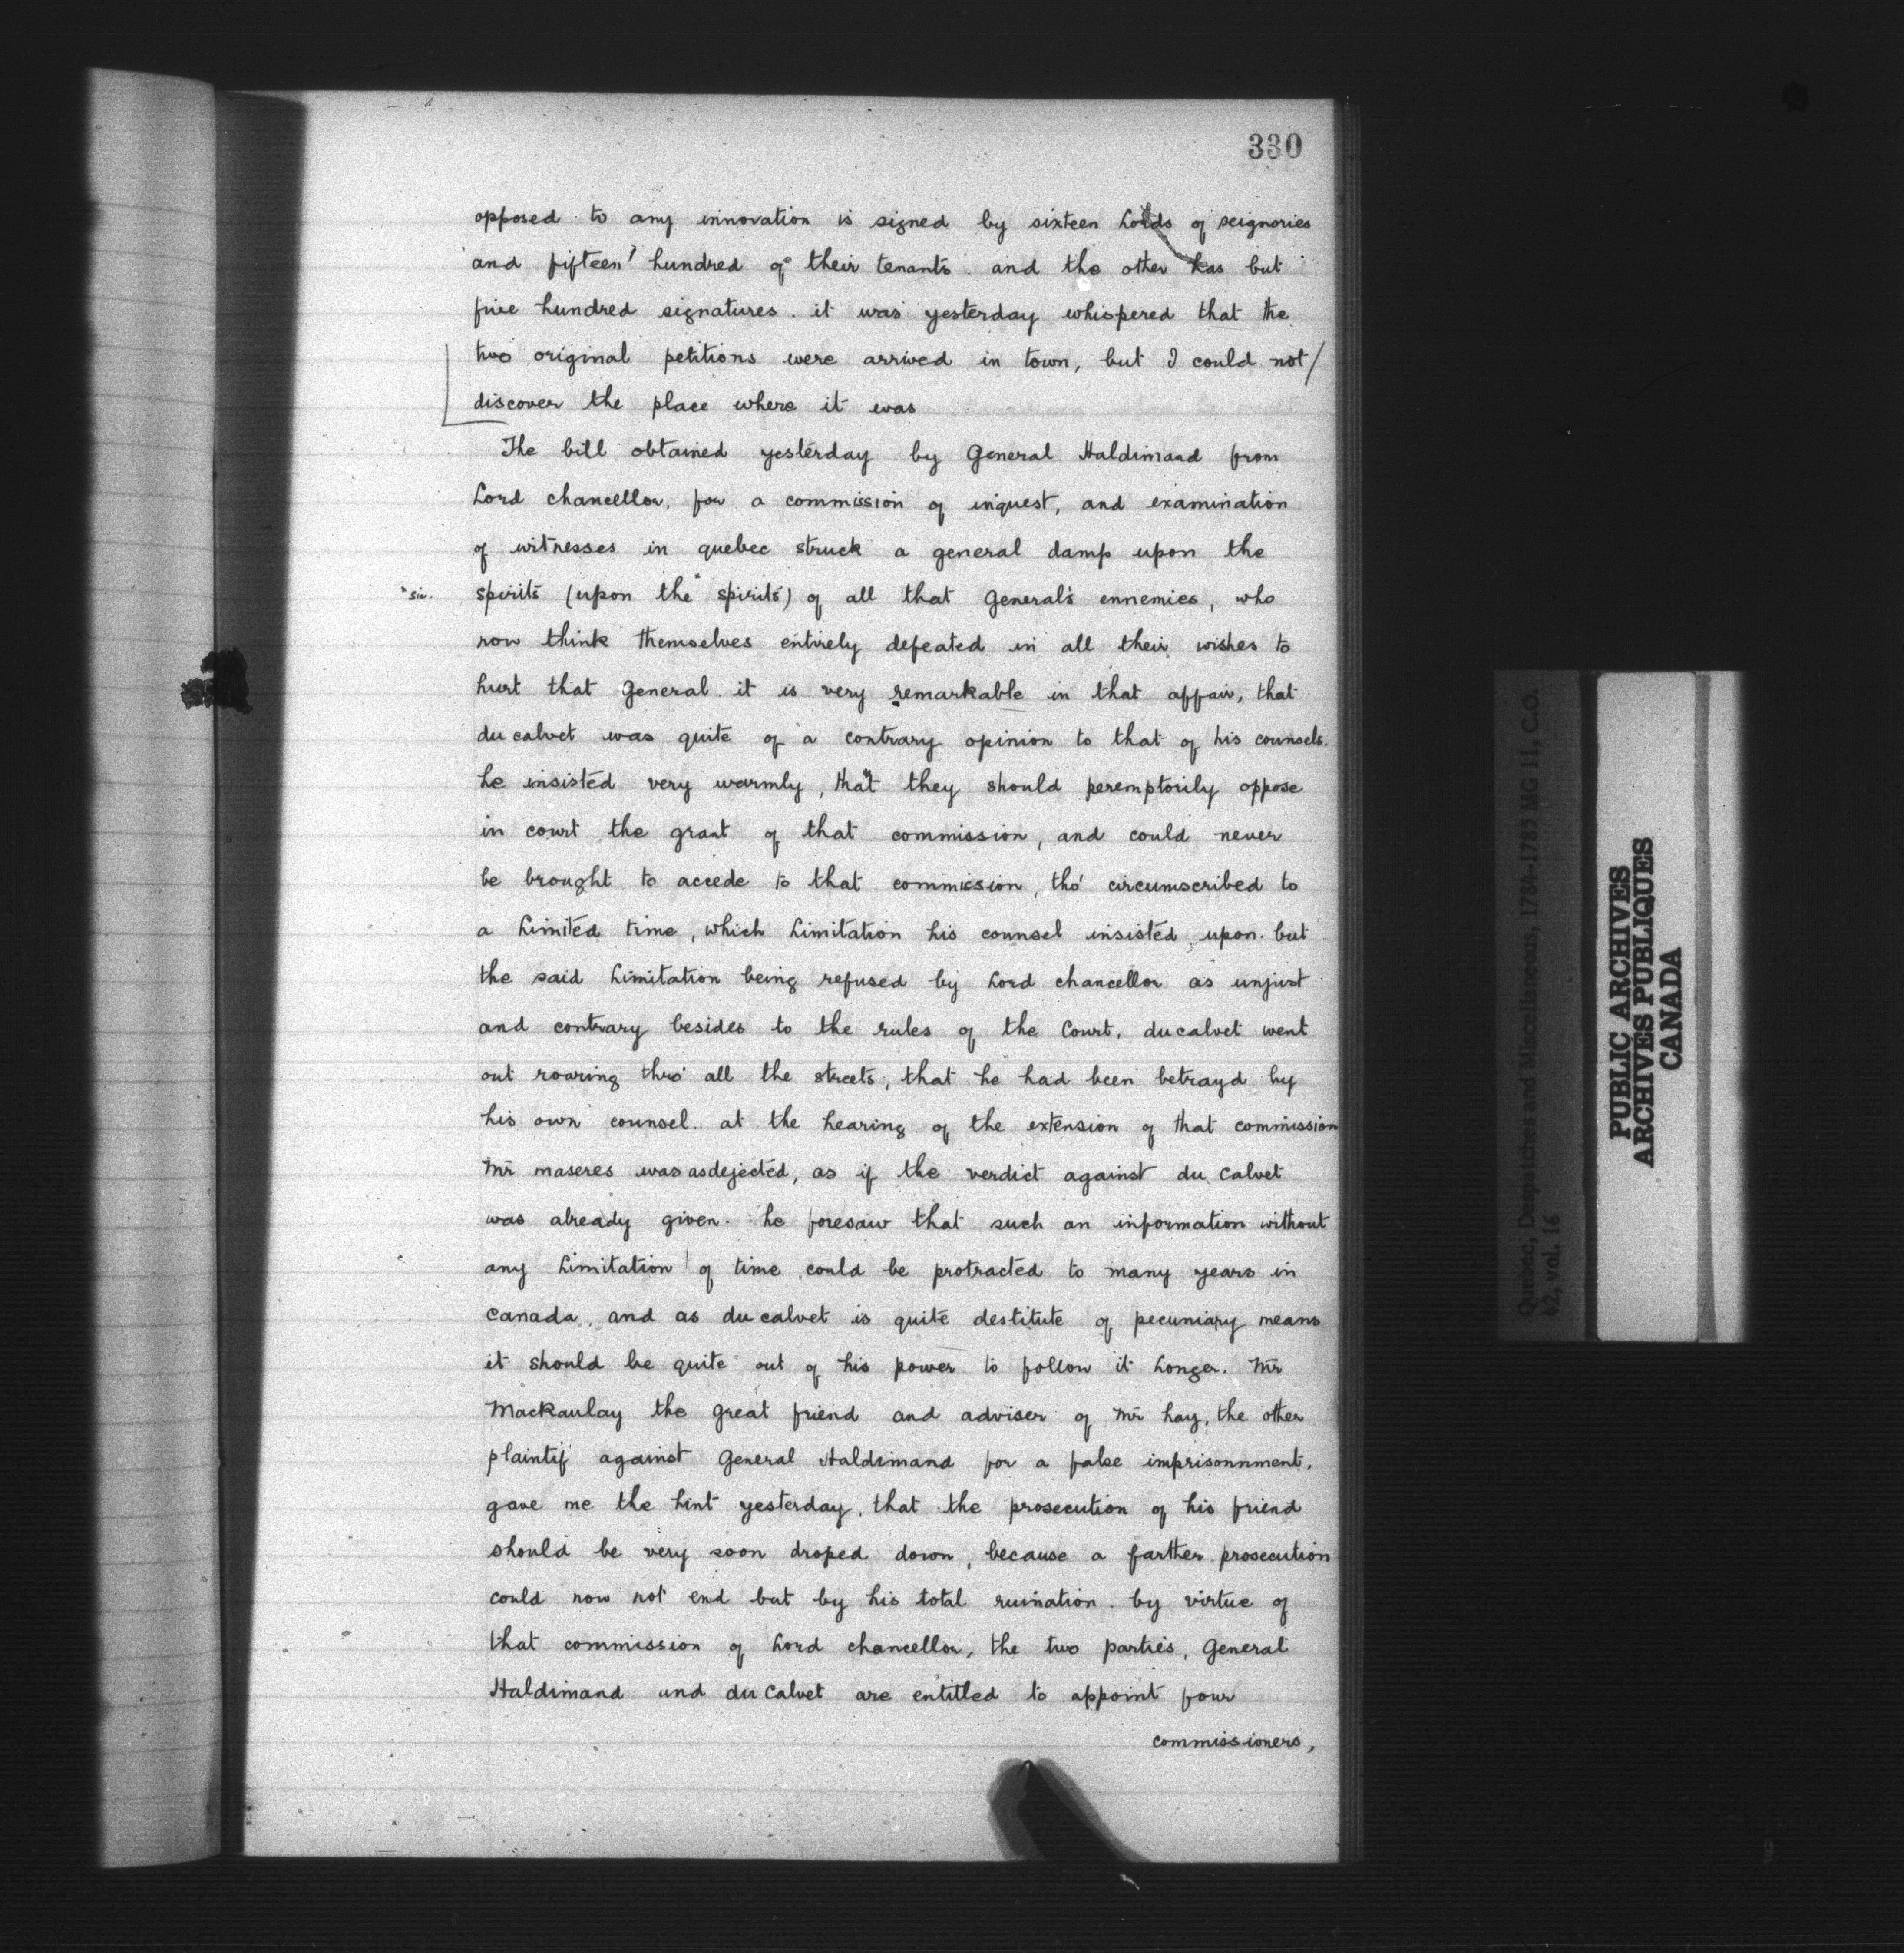 330
opposed to any innovation is signed by sixteen Lords of seignories
and fifteen hundred of their tenants. and the other has but
five hundred signatures. it was yesterday whispered that the
two original petitions were arrived in town, but I could not
discover the place where it was
The bill obtained yesterday by General Haldimand from
Lord chancellor, for a commission of inquest, and examination
of witnesses in quebec struck a general damp upon the
"sic. spirits (upon the" spirits) of all that General's ennemies, who
now think themselves entirely defeated in all their wishes to
hurt that General. it is very remarkable in that affair, that
du calvet was quite of a contrary opinion to that of his counsels.
he insisted very warmly, that they should peremptorily oppose
in court the grant of that commission, and could never
be brought to accede to that commission, tho' circumscribed to
a Limited time, which Limitation his counsel insisted upon. but
the said Limitation being refused by Lord chancellor as unjust
and contrary besides to the rules of the Court, du calvet went
out roaring thro' all the streets, that he had been betrayd by
his own counsel. at the hearing of the extension of that commission
Mr maseres was as dejected, as if the verdict against du Calvet
was already given. he foresaw that such an information without
any Limitation of time could be protracted to many years in
Canada, and as du calvet is quite destitute of pecuniary means
it should be quite out of his power to follow it Longer. Mr
Mackaulay the great friend and adviser of Mr hay, the other
plaintif against General Haldimand for a false imprisonnment.
gave me the hint yesterday, that the prosecution of his friend
should be very soon droped down, because a farther prosecution
could now not end but by his total ruination. by virtue of
that commission of Lord chancellor, the two parties, General
Haldimand and du Calvet are entitled to appoint four
commissioners,
Quebec, Despatches and Miscellaneous, 1784-1785 MG 11, C.O.
42, vol. 16
PUBLIC ARCHIVES
ARCHIVES PUBLIQUES
CANADA